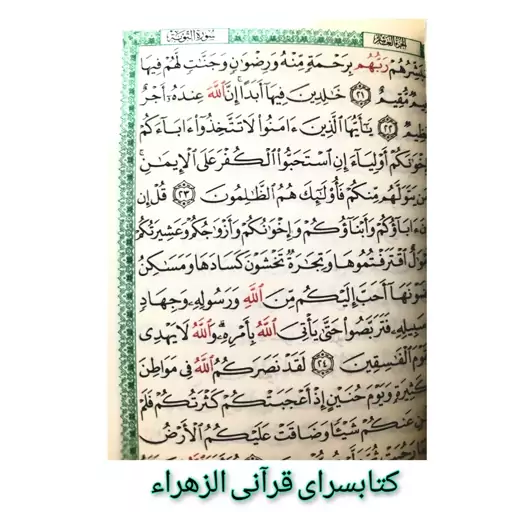 الجزء العاشر سورة التوبة
يُبَشِّرُهُمْ رَبُّهُم بِرَحْمَةٍ مِّنْهُ وَرِضْوَانٍ وَجَنَّاتٍ لَّهُمْ فِيهَا
نَعِيمٌ مُّقِيمٌ ﴿٢١﴾ خَالِدِينَ فِيهَا أَبَدًا إِنَّ اللَّهَ عِندَهُ أَجْرٌ
عَظِيمٌ ﴿٢٢﴾ يَاأَيُّهَا الَّذِينَ ءَامَنُوا لَا تَتَّخِذُوا ءَابَاءَكُمْ
وَإِخْوَانَكُمْ أَوْلِيَاءَ إِنِ اسْتَحَبُّوا الْكُفْرَ عَلَى الْإِيمَانِ
وَمَن يَتَوَلَّهُم مِّنكُمْ فَأُولَئِكَ هُمُ الظَّالِمُونَ ﴿٢٣﴾ قُلْ إِن
كَانَ ءَابَاؤُكُمْ وَأَبْنَاؤُكُمْ وَإِخْوَانُكُمْ وَأَزْوَاجُكُمْ وَعَشِيرَتُكُمْ
وَأَمْوَالٌ اقْتَرَفْتُمُوهَا وَتِجَارَةٌ تَخْشَوْنَ كَسَادَهَا وَمَسَاكِنُ
تَرْضَوْنَهَا أَحَبَّ إِلَيْكُم مِّنَ اللَّهِ وَرَسُولِهِ وَجِهَادٍ
فِي سَبِيلِهِ فَتَرَبَّصُوا حَتَّى يَأْتِيَ اللَّهُ بِأَمْرِهِ وَاللَّهُ لَا يَهْدِي
الْقَوْمَ الْفَاسِقِينَ ﴿٢٤﴾ لَقَدْ نَصَرَكُمُ اللَّهُ فِي مَوَاطِنَ
كَثِيرَةٍ وَيَوْمَ حُنَيْنٍ إِذْ أَعْجَبَتْكُمْ كَثْرَتُكُمْ فَلَمْ
تُغْنِ عَنكُمْ شَيْئًا وَضَاقَتْ عَلَيْكُمُ الْأَرْضُ
کتابسرای قرآنی الزهراء